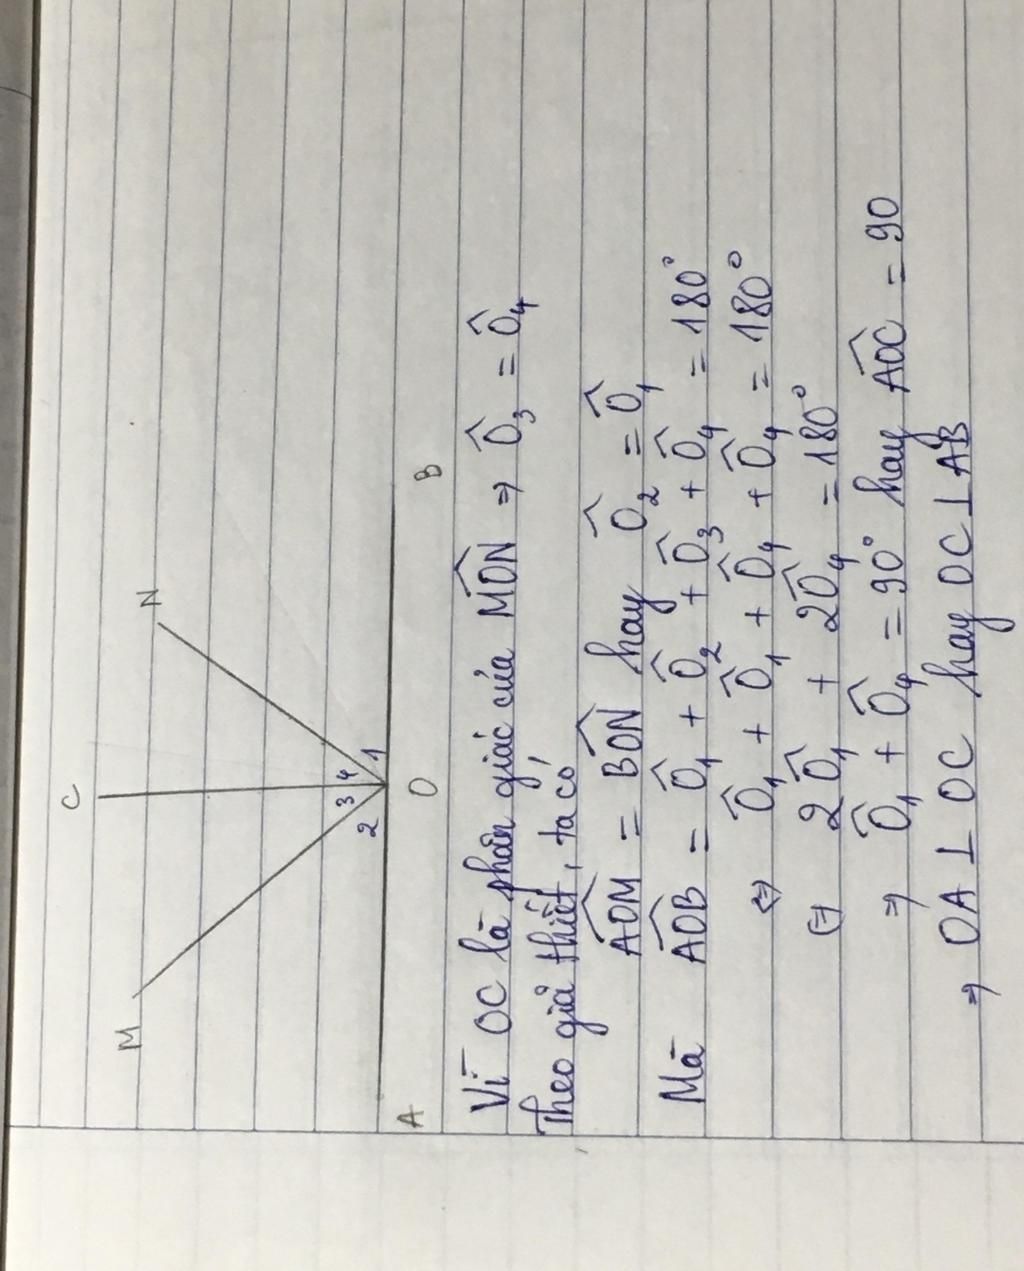 C
M
N
2 3 4 1
A
O
B
Vì OC là phân giác của M̂ON ⇒ Ô₃ = Ô₄
Theo giả thiết, ta có
ÂOM = B̂ON hay Ô₂ = Ô₁
Mà ÂOB = Ô₁ + Ô₂ + Ô₃ + Ô₄ = 180°
⇔ Ô₁ + Ô₁ + Ô₄ + Ô₄ = 180°
⇔ 2Ô₁ + 2Ô₄ = 180°
⇒ Ô₁ + Ô₄ = 90° hay ÂOC = 90
⇒ OA ⊥ OC hay OC ⊥ AB